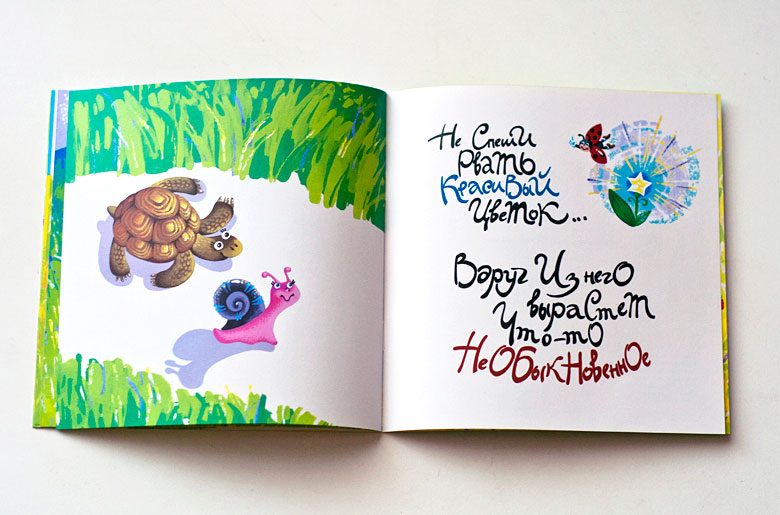 Не Спеши
Рвать
Красивый
Цветок...
Вдруг Из него
И вырастет
Что-то
Необыкновенное